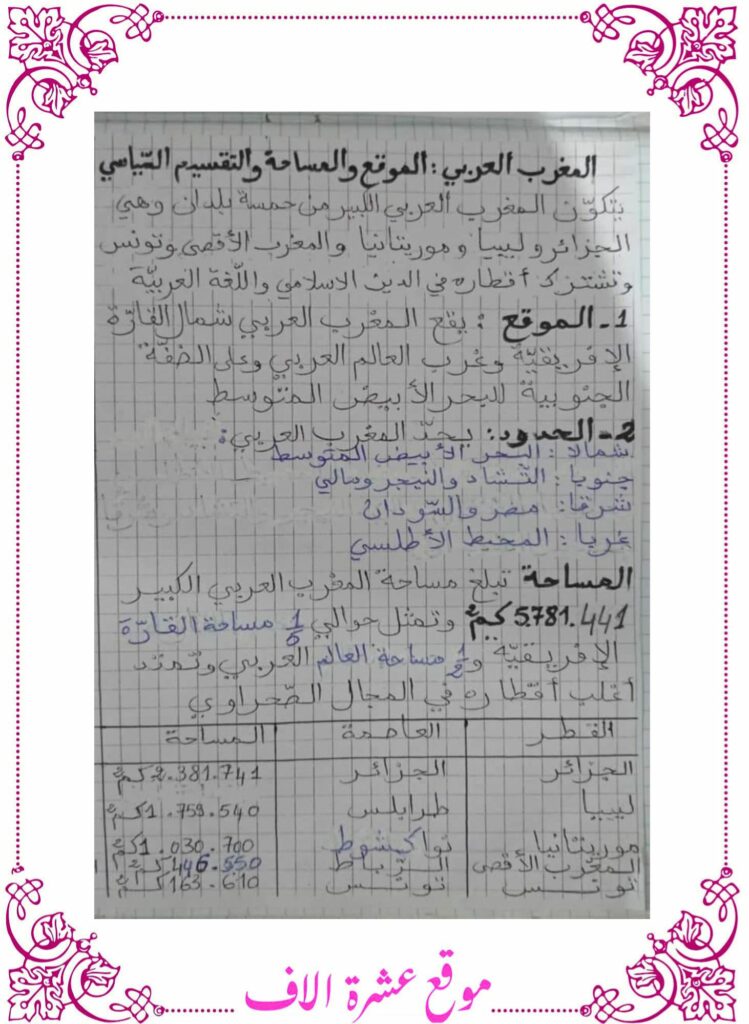 المغرب العربي: الموقع والمساحة والتقسيم السّياسي
يتكوّن المغرب العربي الكبير من خمسة بلدان وهي
الجزائر وليبيا وموريتانيا والمغرب الأقصى وتونس
وتشترك أقطاره في الدين الاسلامي واللّغة العربيّة
1- الموقع: يقع المغرب العربي شمال القارّة
الإفريقيّة وغرب العالم العربي وعلى الضفّة
الجنوبية للبحر الأبيض المتوسط
2- الحدود: يحدّ المغرب العربي:
شمالا: البحر الأبيض المتوسط
جنوبا: التّشاد والنيجر ومالي
شرقا: مصر والسّودان
غربا: المحيط الأطلسي
المساحة تبلغ مساحة المغرب العربي الكبير
5.781.441 كم² وتمثل حوالي 1/5 مساحة القارّة
الإفريقيّة و 1/2 مساحة العالم العربي وتمتد
أغلب أقطاره في المجال الصّحراوي
القطر العاصمة المساحة
الجزائر الجزائر 2.381.741 كم²
ليبيا طرابلس 1.759.540 كم²
موريتانيا نواكشوط 1.030.700 كم²
المغرب الأقصى الرّباط 446.550 كم²
تونس تونس 163.610 كم²
موقع عشرة الاف